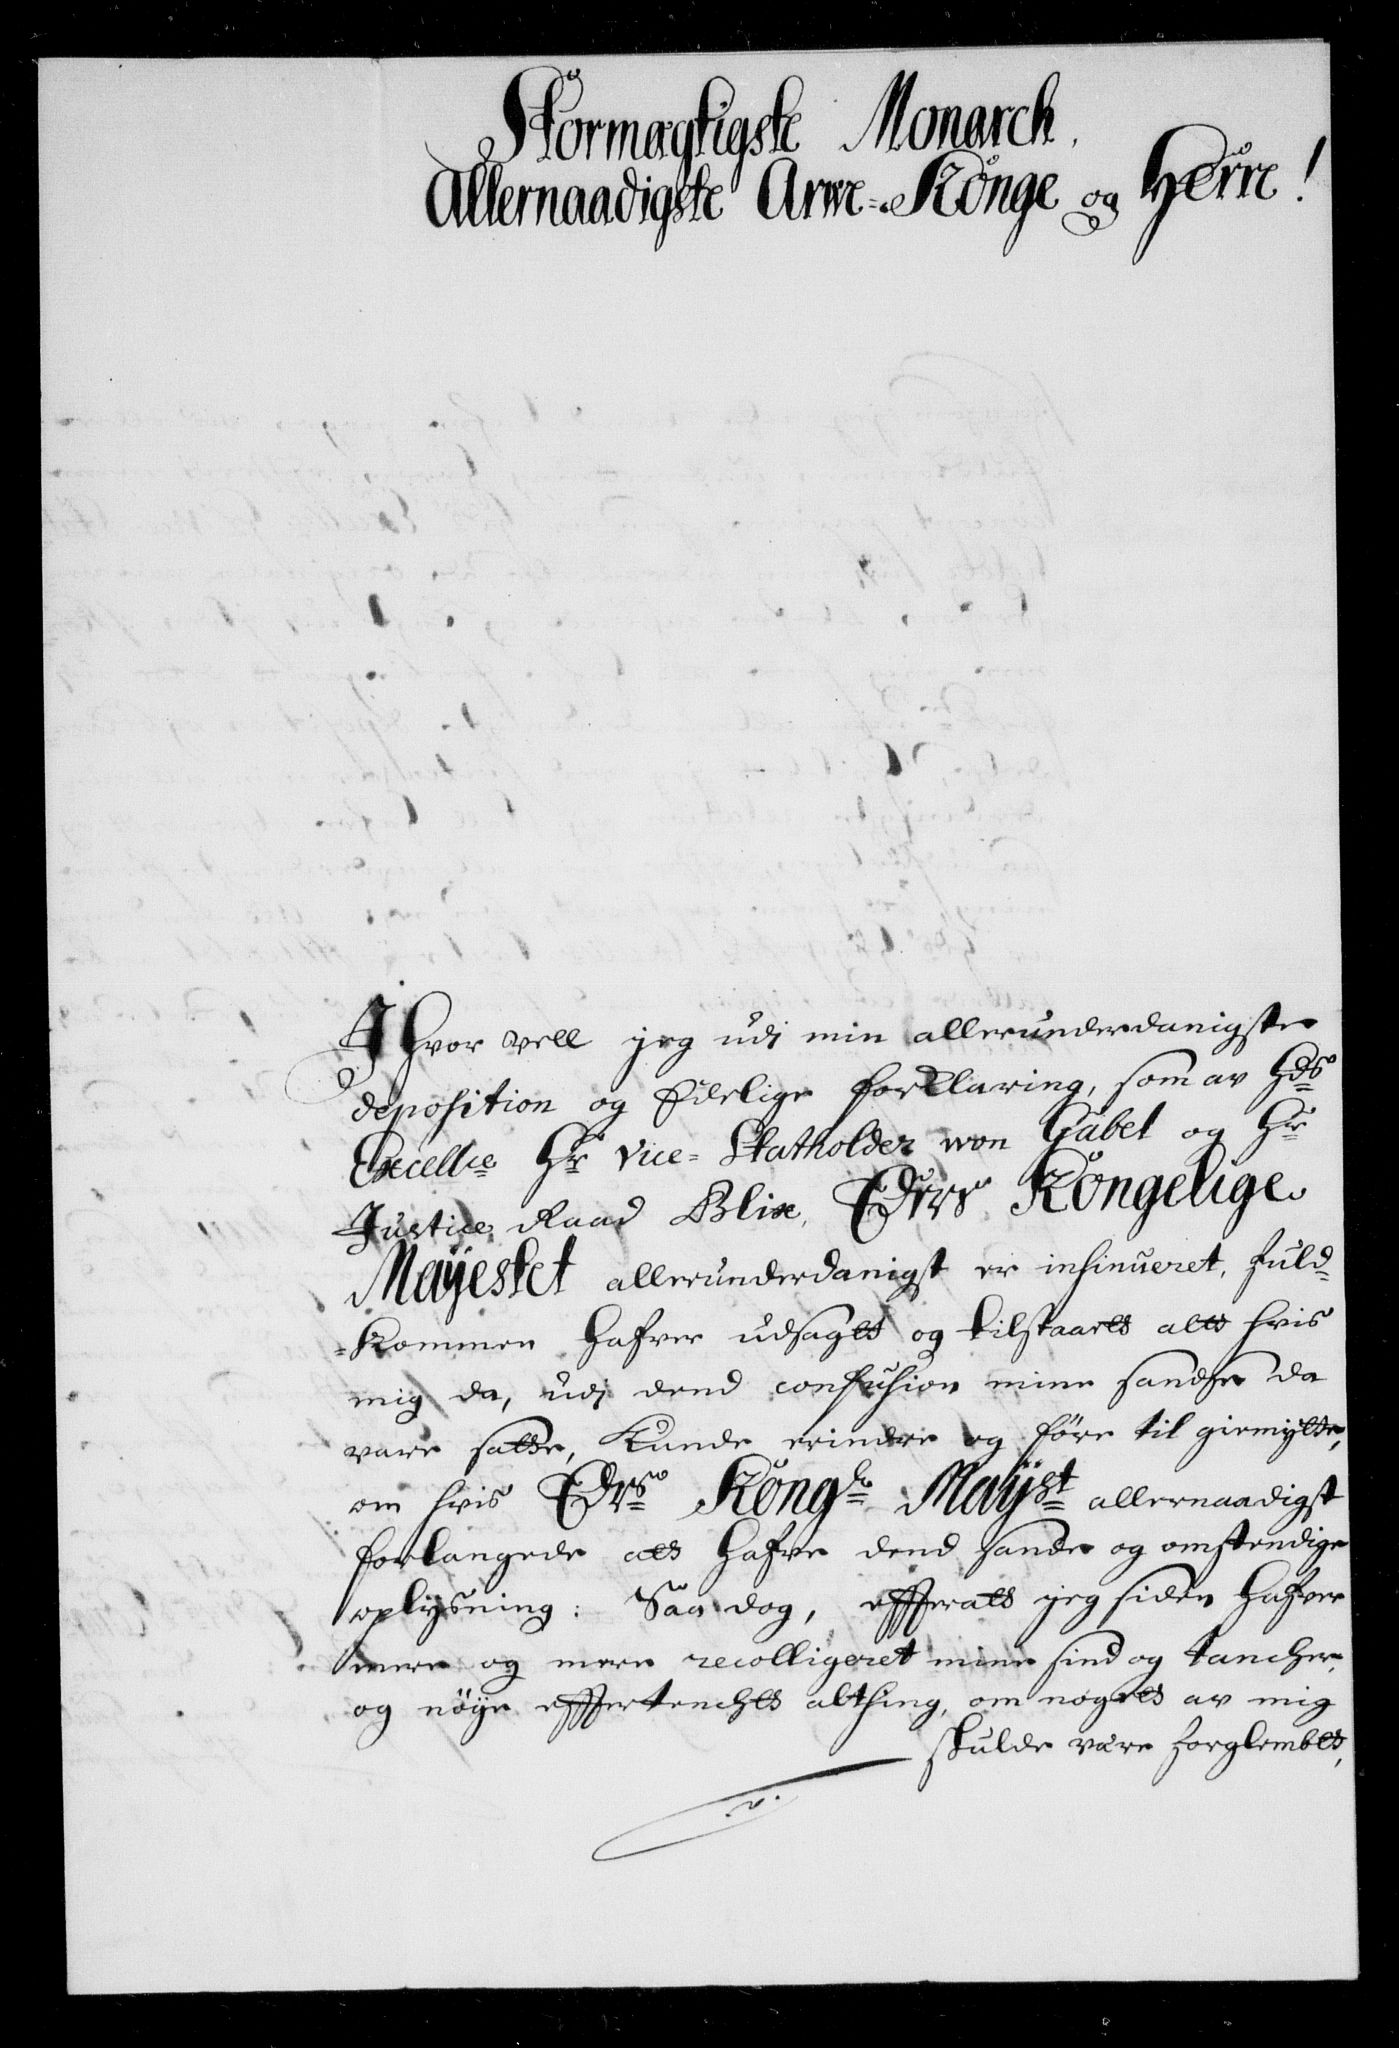 Stormægtigste Monarch,
Allernaadigste Arwe-Konge og Herre!
Ihvor vell jeg udj min allerunderdanigste
deposition og Edelige forklaring, som av Hds
Excellce Hr Vice-Statholder von Gabel og Hr
Justice Raad Blix, Eders Kongelige
Mayestet allerunderdanigst er insinueret, fuld-
-kommen hafver udsagt og tilstaaet alt hvis
mig da, udj dend confusion mine sandser da
vare satte, kunde erindre og före til giemytte,
om hvis Eders Kongle Mayst allernaadigst
forlangede at hafve dend sande og omstendige
oplysning: Saa dog, effterat jeg siden hafver
mere og mere recolligeret mine sind og tancher,
og nöye effertencht alting, om noget av mig
skulde være forglembt,